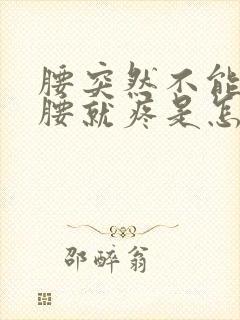 腰突然不能
腰就疼是怎
邵醉翁